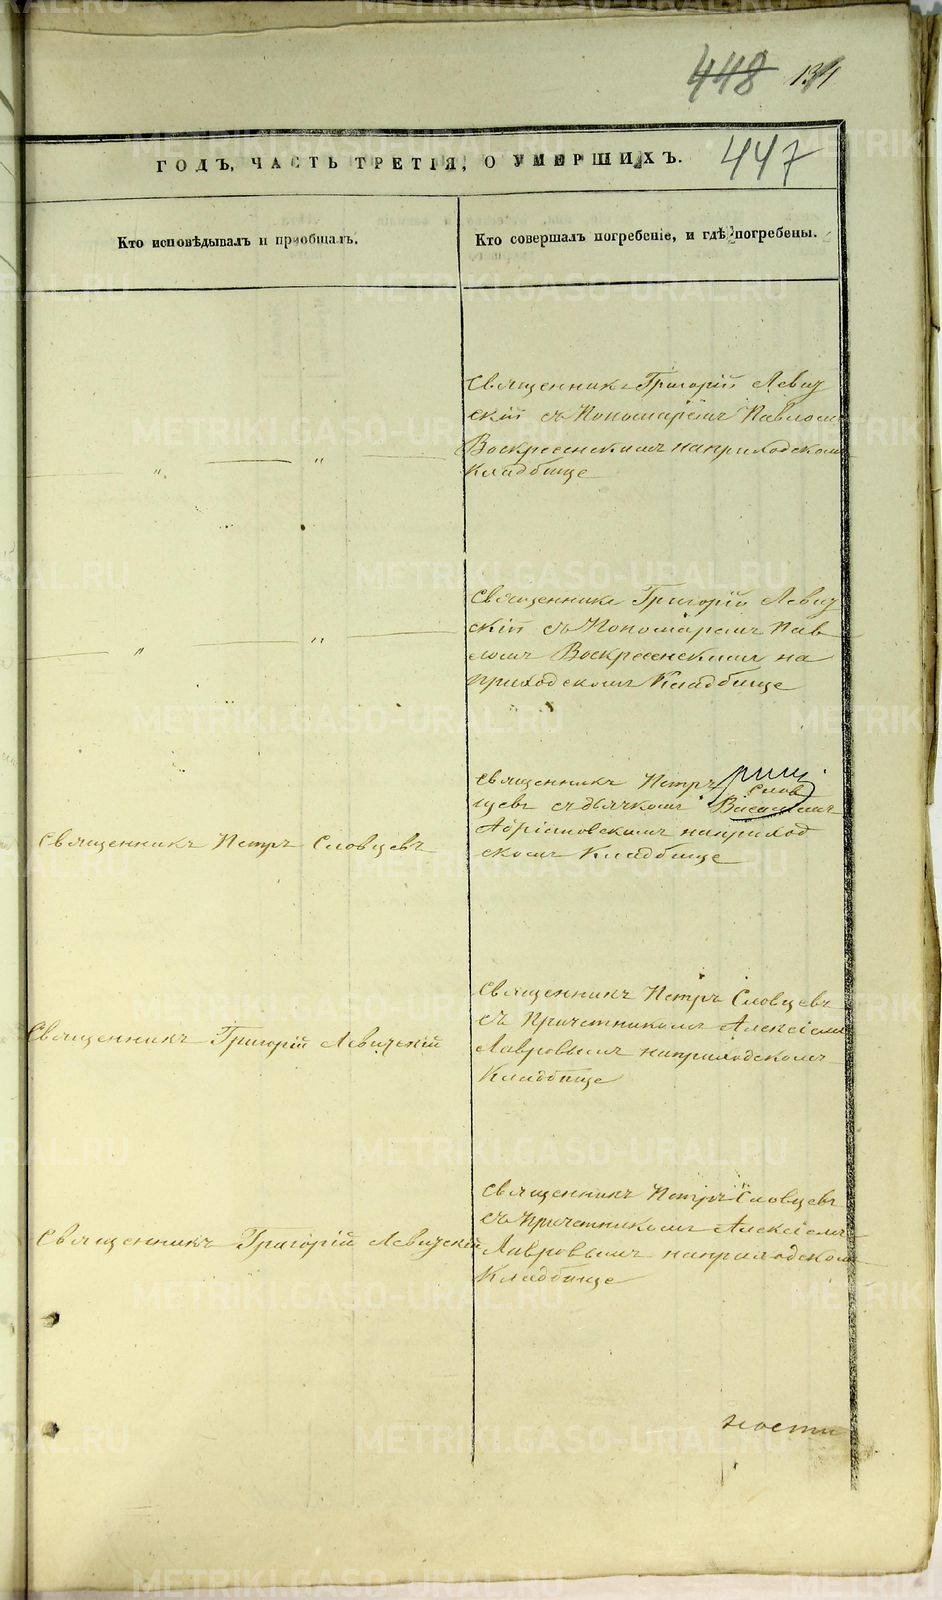 448 134
447
ГОДЪ, ЧАСТЬ ТРЕТІЯ, О УМЕРШИХЪ.
Кто исповѣдывалъ и пріобщалъ.
Кто совершалъ погребеніе, и гдѣ погребены.
Священникъ Григорій Левиц
скій съ Пономаремъ Павломъ
Воскресенскимъ на приходскомъ
Кладбище
" "
Священникъ Григорій Левиц
скій съ Пономаремъ Пав
ломъ Воскресенскимъ на
приходскомъ Кладбище
" "
Священникъ Петръ Слов
цевъ съ дьячкомъ
Адріановскомъ на приход
скомъ Кладбище
Священникъ Петръ Словцевъ
Священникъ Петръ Словцевъ
съ Причетникомъ Алексіемъ
Лавровымъ на приходскомъ
Кладбище
Священникъ Григорій Левицскій
Священникъ Петръ Словцевъ
съ Причетникомъ Алексіемъ
Лавровымъ на приходскомъ
Кладбище
Священникъ Григорій Левицскій
ности
METRIKI.GASO-URAL.RU